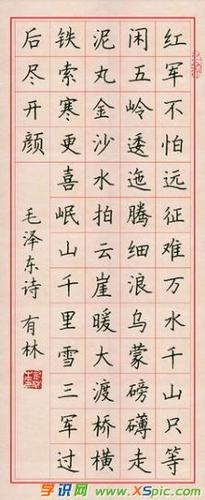 红军不怕远征难万水千山只等
闲五岭逶迤腾细浪乌蒙磅礴走
泥丸金沙水拍云崖暖大渡桥横
铁索寒更喜岷山千里雪三军过
后尽开颜
毛泽东诗 有林
学识网 www.XSpic.com